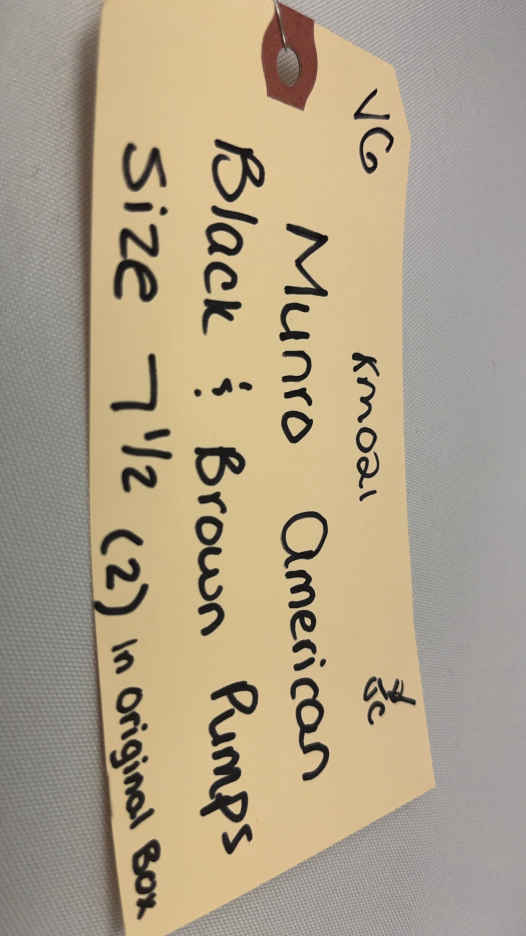 VG KM021
Munro American
Black & Brown Pumps
Size 7 1/2 (2) in original Box